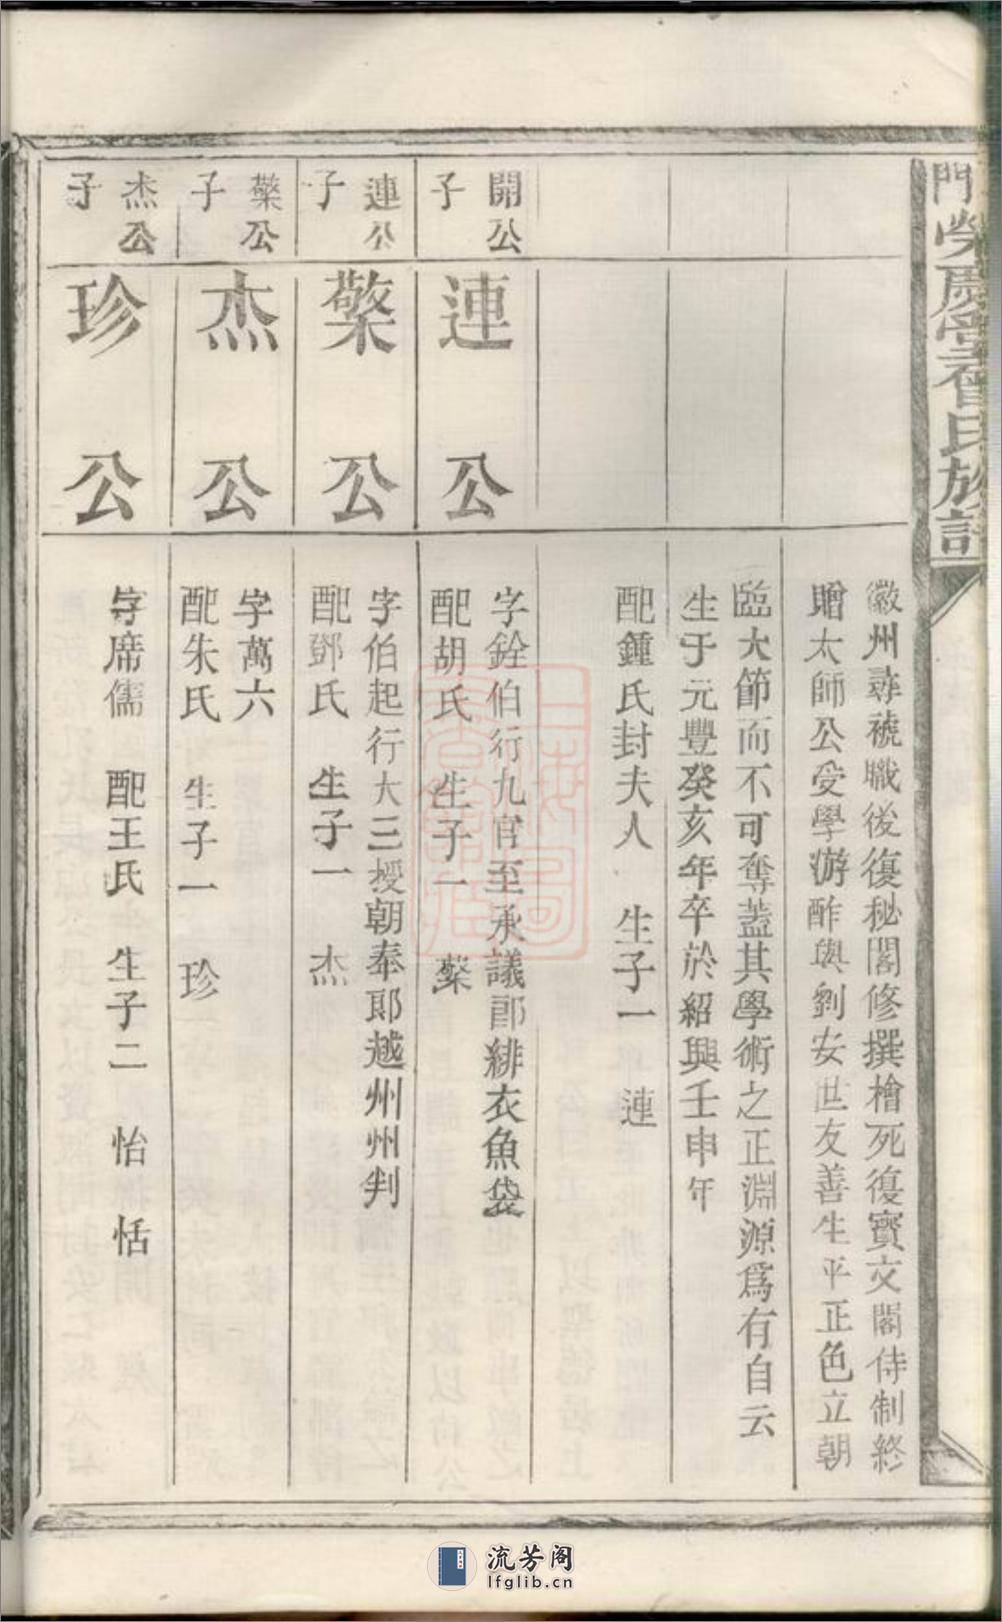 門榮慶堂曾氏族譜
徽州尋褫職後復秘閣修撰檜死復寶文閣侍制終
贈太師公受學游酢與劉安世友善生平正色立朝
臨大節而不可奪蓋其學術之正淵源爲有自云
生于元豐癸亥年卒於紹興壬申年
配鍾氏封夫人 生子一 連
開公
子
連公
字銓伯行九官至承議郎緋衣魚袋
配胡氏 生子一 檠
連公
子
檠公
字伯起行大三授朝奉郎越州州判
配鄧氏 生子一 杰
檠公
子
杰公
字萬六
配朱氏 生子一 珍
杰公
子
珍公
字席儒 配王氏 生子二 怡 恬
流芳阁
lfglib.cn